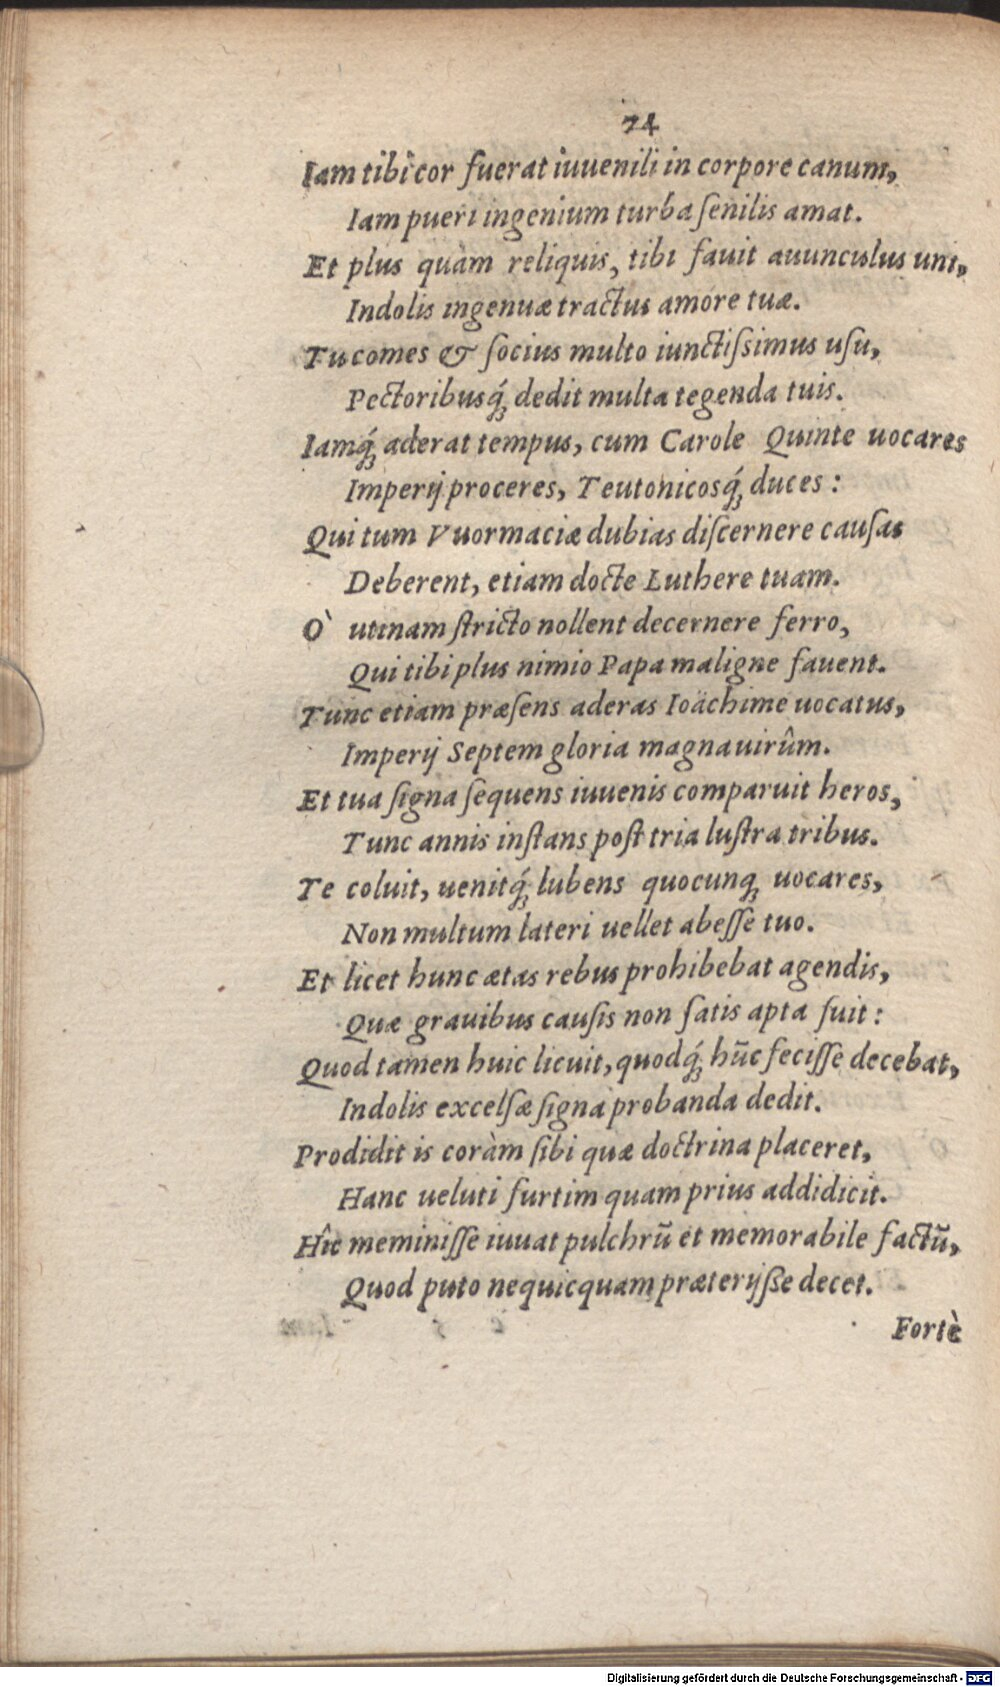 74
Iam tibi cor fuerat iuuenili in corpore canum,
Iam pueri ingenium turba ſenilis amat.
Et plus quàm reliquis, tibi fauit auunculus uni,
Indolis ingenuæ tractus amore tuæ.
Tu comes & ſocius multo iunctiſsimus uſu,
Pectoribusq́; dedit multa tegenda tuis.
Iamq́; aderat tempus, cum Carole Quinte uocares
Imperij proceres, Teutonicosq́; duces:
Qui tum Vuormaciæ dubias diſcernere cauſas
Deberent, etiam docte Luthere tuam.
Ò utinam ſtricto nollent decernere ferro,
Qui tibi plus nimio Papa maligne fauent.
Tunc etiam præſens aderas Ioächime uocatus,
Imperij Septem gloria magna uirûm.
Et tua ſigna ſequens iuuenis comparuit heros,
Tunc annis inſtans poſt tria luſtra tribus.
Te coluit, uenitq́; lubens quocunq; uocares,
Non multum lateri uellet abeſſe tuo.
Et licet hunc ætas rebus prohibebat agendis,
Quæ grauibus cauſis non ſatis apta fuit:
Quod tamen huic licuit, quodq́; hũc feciſſe decebat,
Indolis excelſæ ſigna probanda dedit.
Prodidit is coràm ſibi quæ doctrina placeret,
Hanc ueluti furtim quam prius addidicit.
Hîc meminiſſe iuuat pulchrũ et memorabile factũ,
Quod puto nequicquam præterijſſe decet.
Fortè
Digitalisierung gefördert durch die Deutsche Forschungsgemeinschaft - DFG